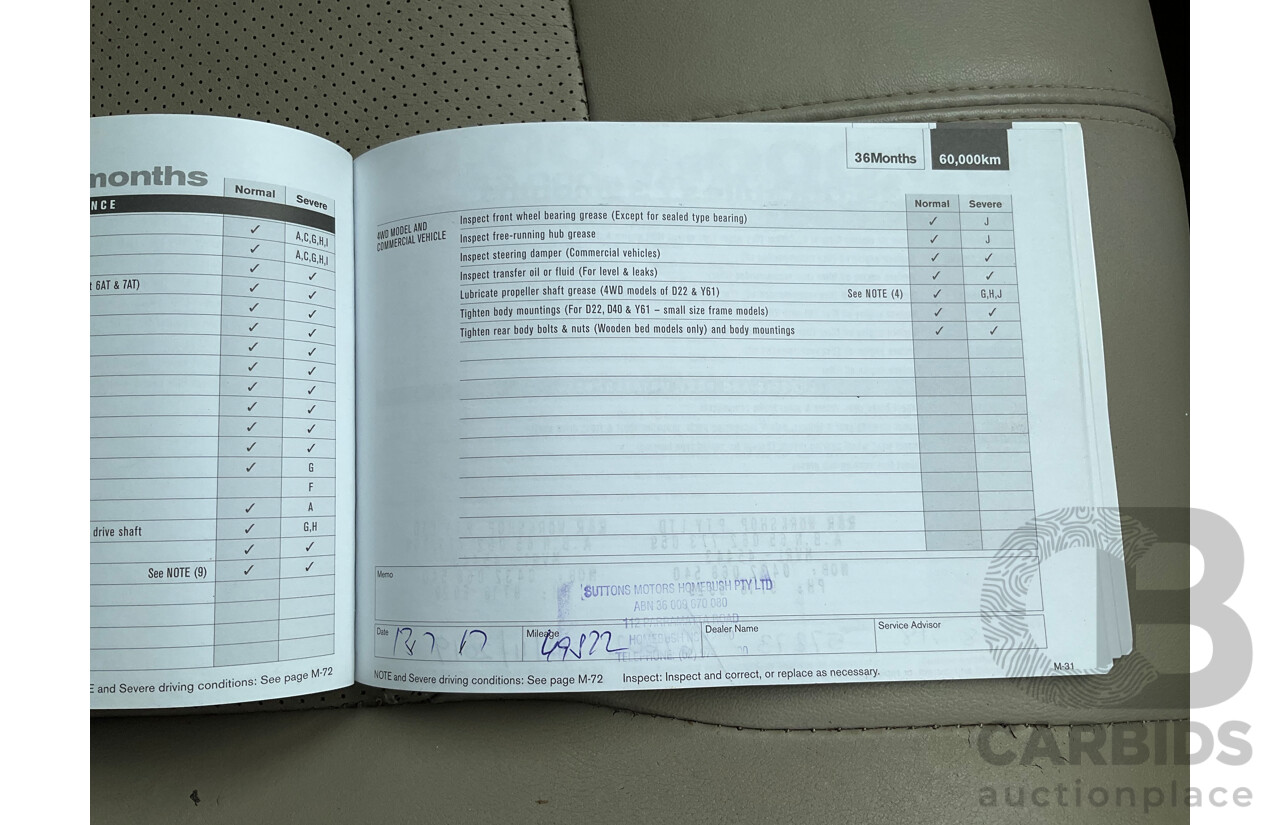 months
Normal Severe
NCE
✓ A,C,G,H,I
✓ A,C,G,H,I
✓ ✓
t 6AT & 7AT) ✓ ✓
✓ ✓
✓ ✓
✓ ✓
✓ ✓
✓ ✓
✓ ✓
✓ ✓
✓ ✓
✓ G
F
✓ A
drive shaft ✓ G,H
✓ ✓
See NOTE (9) ✓ ✓
E and Severe driving conditions: See page M-72
36Months 60,000km
Normal Severe
4WD MODEL AND
COMMERCIAL VEHICLE
Inspect front wheel bearing grease (Except for sealed type bearing) ✓ J
Inspect free-running hub grease ✓ J
Inspect steering damper (Commercial vehicles) ✓ ✓
Inspect transfer oil or fluid (For level & leaks) ✓ ✓
Lubricate propeller shaft grease (4WD models of D22 & Y61) See NOTE (4) ✓ G,H,J
Tighten body mountings (For D22, D40 & Y61 – small size frame models) ✓ ✓
Tighten rear body bolts & nuts (Wooden bed models only) and body mountings ✓ ✓
Memo
SUTTONS MOTORS HOMEBUSH PTY LTD
ABN 36 009 070 080
112 PARRAMATTA ROAD
Date Mileage Dealer Name Service Advisor
NOTE and Severe driving conditions: See page M-72 Inspect: Inspect and correct, or replace as necessary.
M-31
CARBIDS
auctionplace